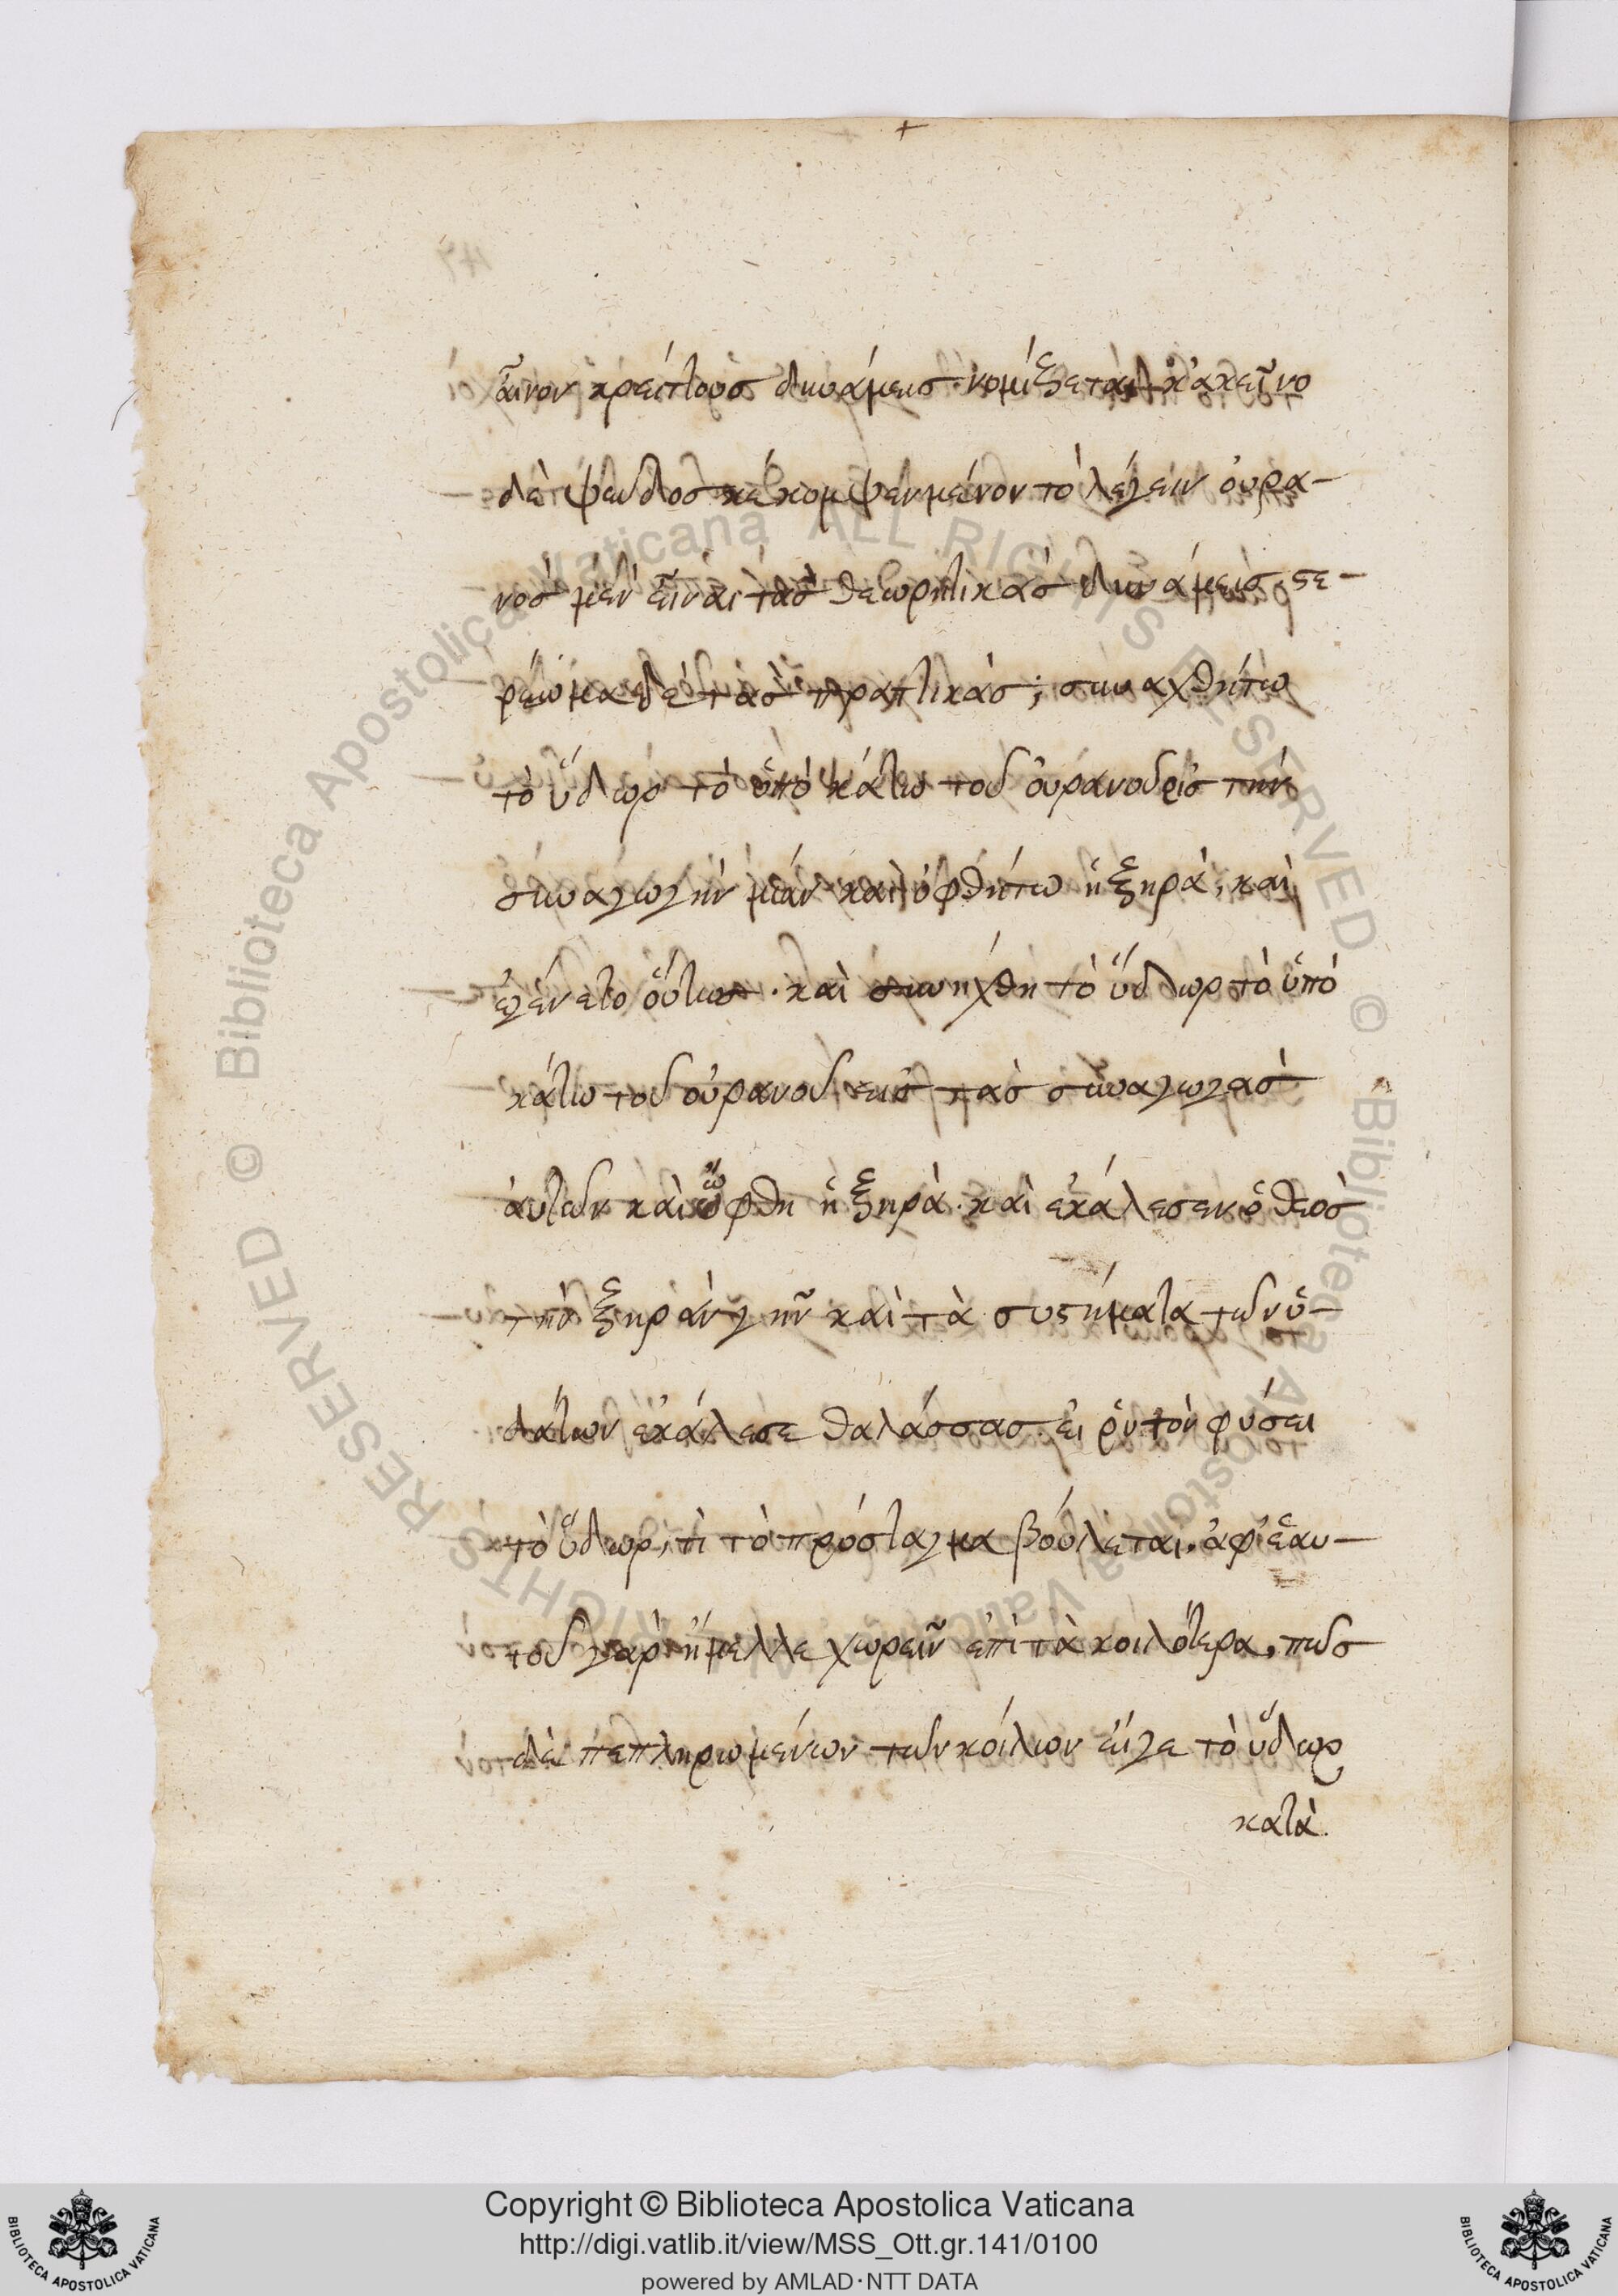 αἶνον κρείττους δυνάμεις νομίζεται. κἀκεῖνο
δὲ ψεῦδος κεκομψευμένον τὸ λέγειν οὐρα-
νὸς μὲν εἶναι τὰς θεωρητικὰς δυνάμεις, στε-
ρέωμα δὲ τὰς πρακτικάς; συναχθήτω
τὸ ὕδωρ τὸ ὑπὸ κάτω τοῦ οὐρανοῦ εἰς τὴν
συναγωγὴν μίαν καὶ ὀφθήτω ἡ ξηρά, καὶ
ἐγένετο οὕτως. καὶ συνήχθη τὸ ὕδωρ τὸ ὑπὸ
κάτω τοῦ οὐρανοῦ εἰς τὰς συναγωγὰς
αὐτῶν καὶ ὤφθη ἡ ξηρὰ. καὶ ἐκάλεσεν ὁ θεὸς
τὴν ξηρὰν γῆν καὶ τὰ συστήματα τῶν ὑ-
δάτων ἐκάλεσε θαλάσσας. εἰ ῥυτὸν φύσει
τὸ ὕδωρ, τί τὸ πρόσταγμα βούλεται. ἀφ' ἑαυ-
τοῦ γὰρ ἤμελλε χωρεῖν ἐπὶ τὰ κοιλότερα, πῶς
δὲ πεπληρωμένων τῶν κοίλων εἶγε τὸ ὕδωρ
κατὰ.
Copyright © Biblioteca Apostolica Vaticana
http://digi.vatlib.it/view/MSS_Ott.gr.141/0100
powered by AMLAD·NTT DATA
BIBLIOTECA APOSTOLICA VATICANA
BIBLIOTECA APOSTOLICA VATICANA
© Biblioteca Apostolica Vaticana ALL RIGHTS RESERVED
© Biblioteca Apostolica Vaticana ALL RIGHTS RESERVED